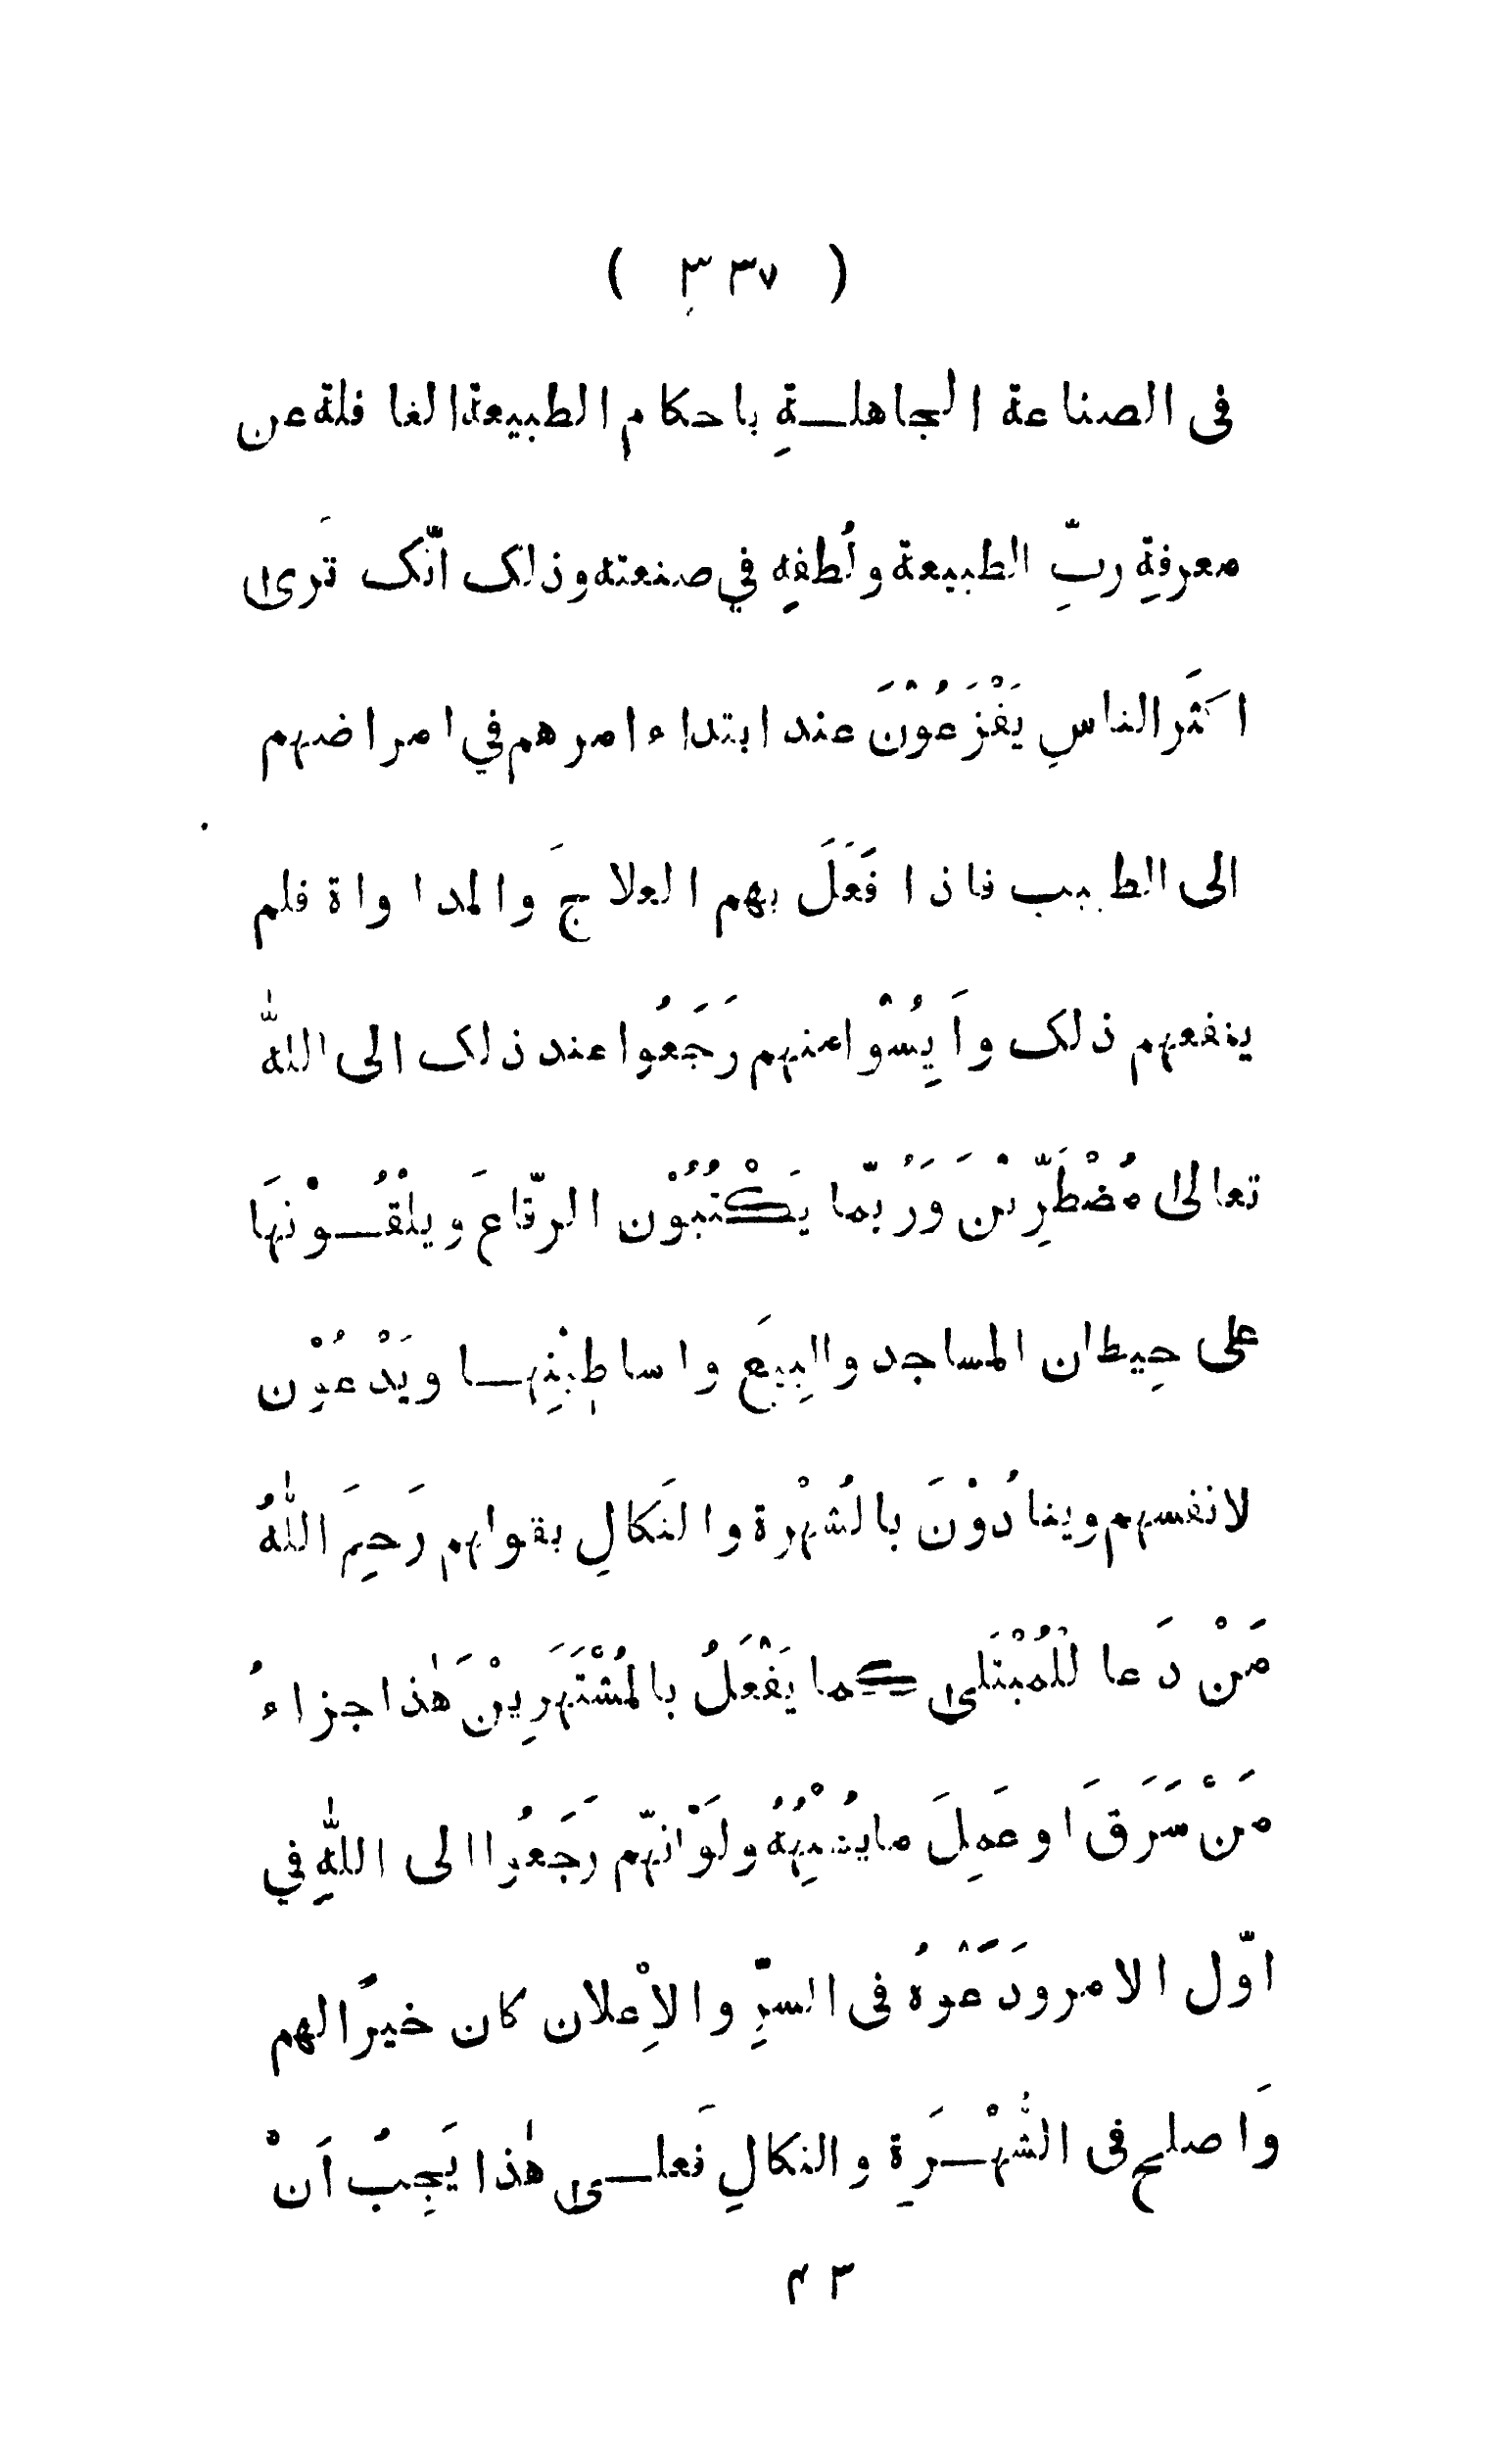 ( ٣٣٧ )
فى الصناعة الجاهلـــةِ باحكام الطبيعة الغافلة عن
معرفةِ ربِّ الطبيعة ولُطفهٖ في صنعته وذلك انّك تَرىٰ
اكثَر الناسِ يَفْزَعُوْنَ عند ابتداء امرهم في امراضهم
الى الطبيب فاذا فَعَلَ بهم العلاجَ والمداواة فلم
ينفعهم ذلك واَيِسُوْا منهم رَجَعُوا عند ذلك الى اللّٰه
تعالىٰ مُضْطَرِّيْنَ وَرُبّما يَكْتُبُوْن الرّقاعَ ويلْقُـــوْنهَا
على حِيطان المساجد والبِيَع واساطِيْنِهـــا ويَدْعُوْن
لانفسهم وينادُوْنَ بالشُهْرة والنَكالِ بقولهم رَحِمَ اللّٰهُ
مَنْ دَعا لِلْمُبْتَلىٰ كما يَفْعَلُ بالمُشْتَهَرِيْنَ هٰذا جزاءُ
مَنْ سَرَقَ او عَمِلَ ما يُشْبِهُهُ ولَوْ انّهم رَجَعُوا الى اللّٰهِ في
اوّل الامر ودَعَوْهُ فى السرِّ والاِعْلان كان خيرًا لهم
وَاصلح فى الشُهْـــرَةِ والنكالِ فَعلـــىٰ هٰذا يَجِبُ اَنْ
٤٣